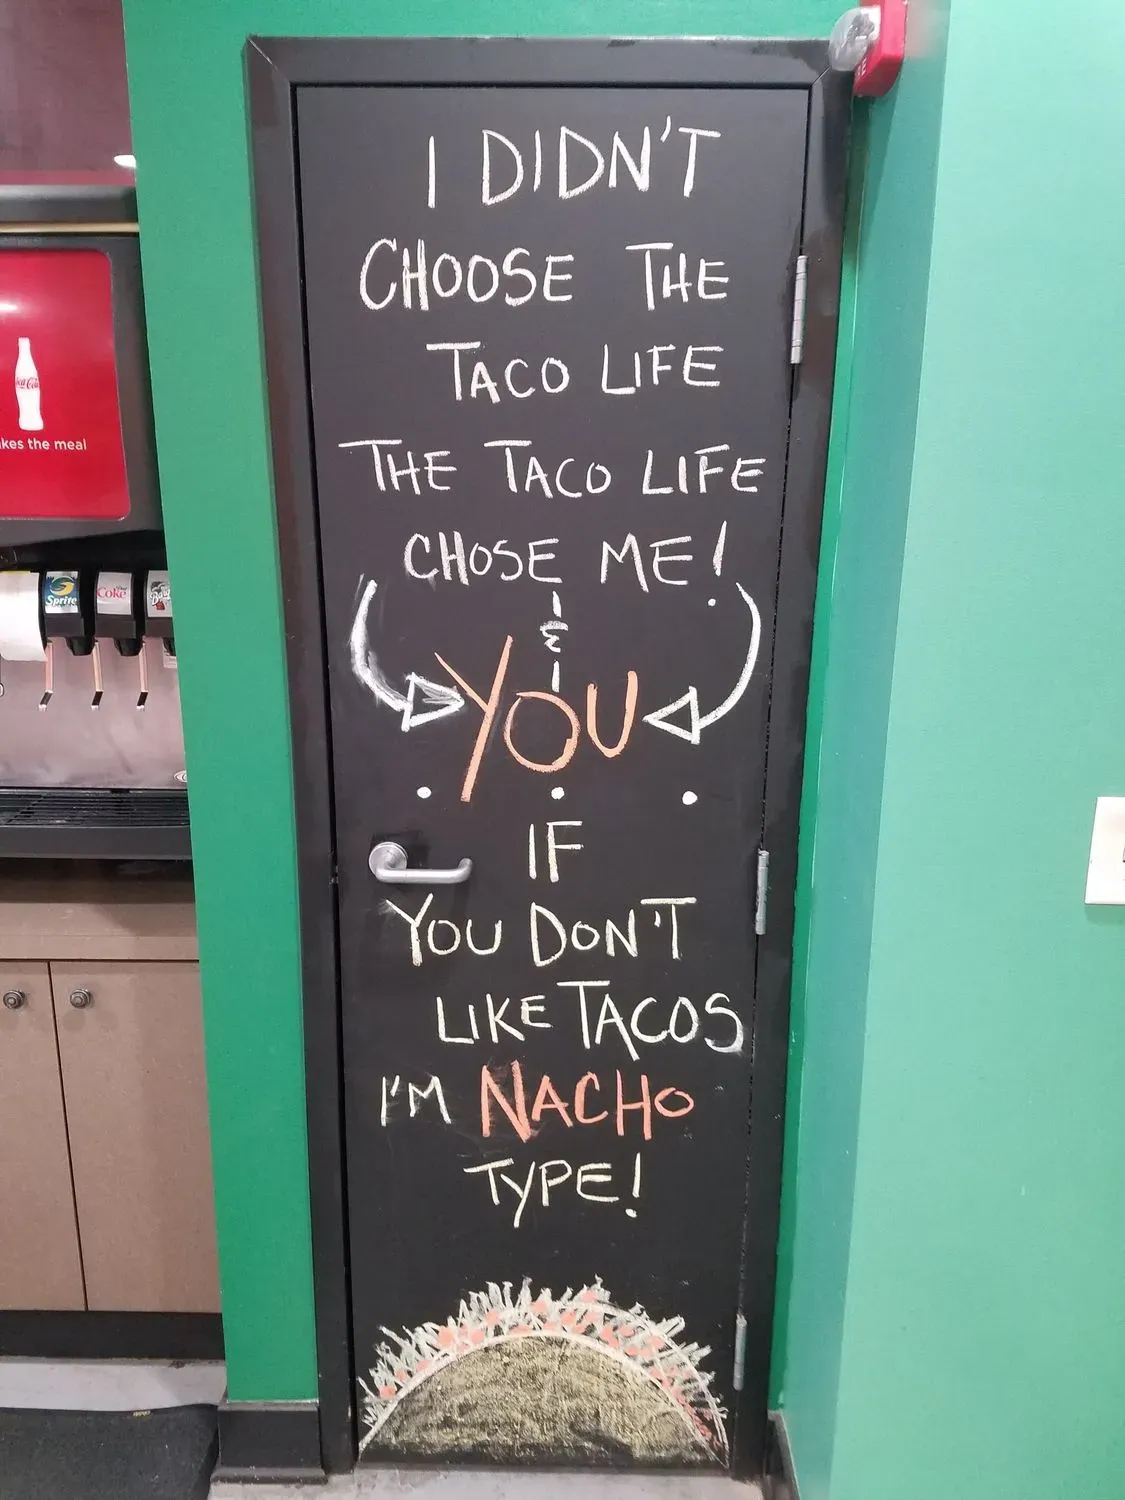 I DIDN'T
CHOOSE THE
TACO LIFE
THE TACO LIFE
CHOSE ME!
&
YOU
IF
YOU DON'T
LIKE TACOS
I'M NACHO
TYPE!
Coca-Cola
kes the meal
Sprite
Coke